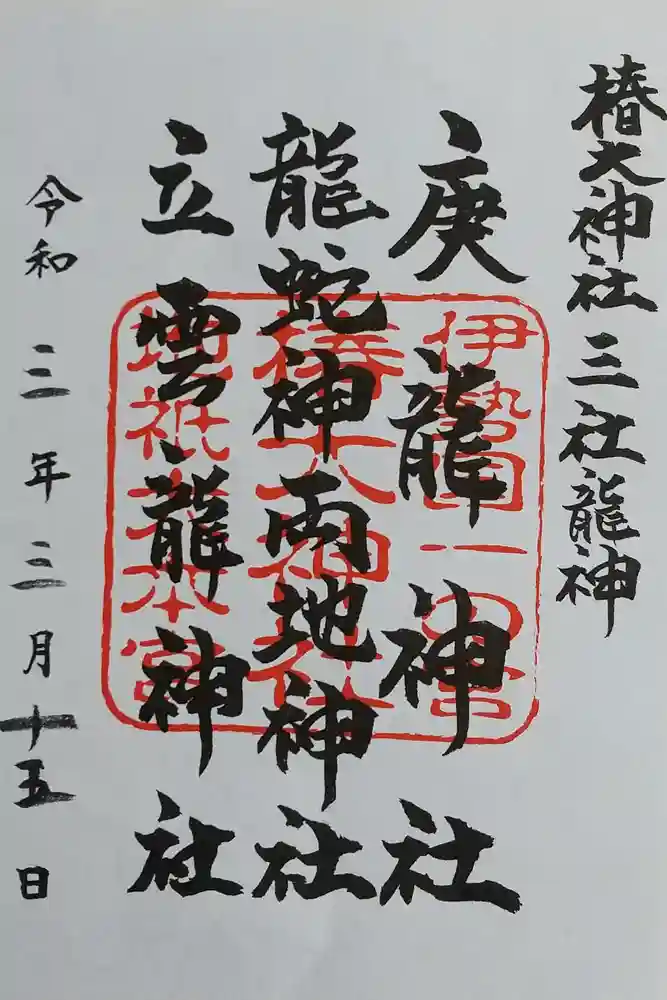 椿大神社三社龍神
庚龍神社
龍蛇神両地神社
立雲龍神社
令和三年三月十五日
伊勢国一の宮
椿大神社
地祇大本宮